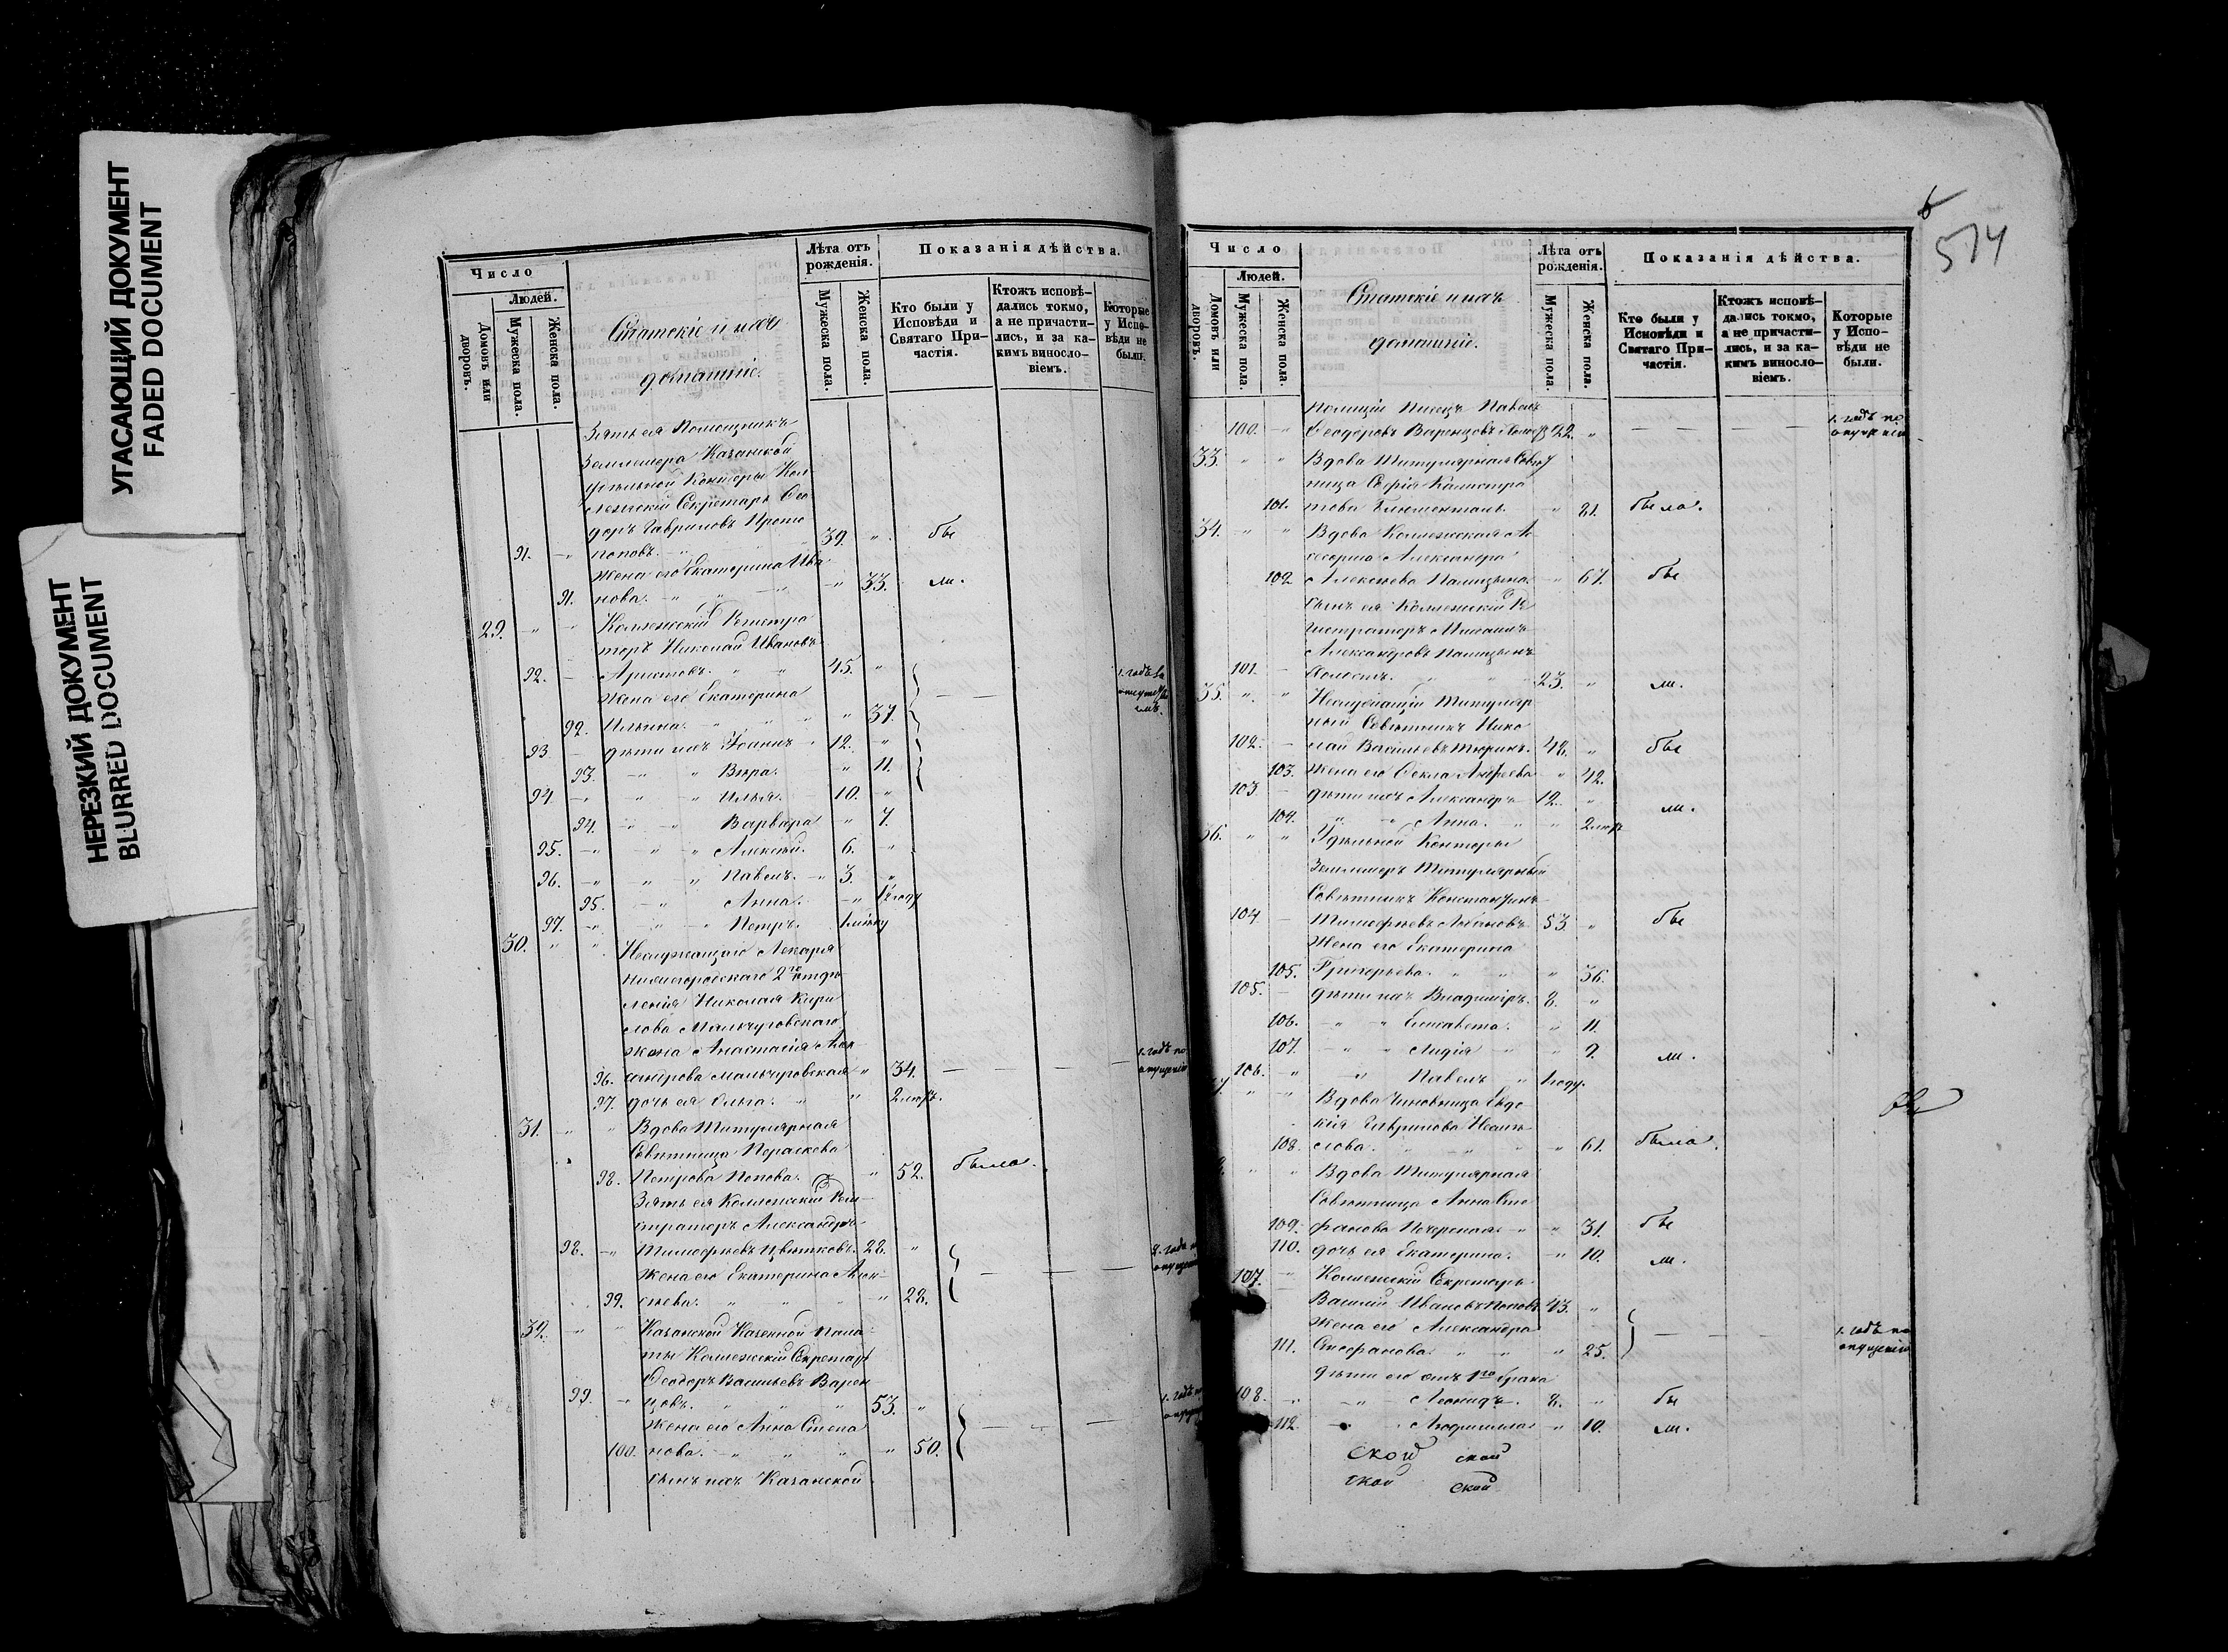 УГАСАЮЩИЙ ДОКУМЕНТ
FADED DOCUMENT
НЕРЕЗКИЙ ДОКУМЕНТ
BLURRED DOCUMENT
Число
Людей.
Домовъ или дворовъ.
Мужеска пола.
Женска пола.
Статскіе и ихъ
домашніе.
Лѣта отъ рожденія.
Мужеска пола.
Женска пола.
Показанія дѣйства.
Кто были у Исповѣди и Святаго Причастія.
Ктожъ исповѣдались токмо, а не причастились, и за какимъ винословіемъ.
Которые у Исповѣди не были.
Зять ея Помощникъ
Землемера Казанской
Удѣльной Конторы Кол
лежскій Секретарь Ѳео
доръ Гавриловъ Прото
91. поповъ. 39. бы
Жена его Екатерина Ива
91. нова. 33. ли.
29. Коллежскій Регистра
торъ Николай Ивановъ
92. Аристовъ. 45.
Жена его Екатерина
92. Ильина. 37.
93 дѣти ихъ Іоаннъ 12.
93. Вѣра. 11.
94. Илья. 10.
94. Варвара 7.
95. Алексѣй. 6.
96. Павелъ. 3.
95. Анна.
97. Петръ.
30. Неслужащаго Лекаря
Нижегородскаго 2го отдѣ
ленія Николая Кири
лова Мальчуговскаго
жена Анастасія Алек
96. сандрова Мальчуговская 34. 1. годъ по опущенію
97. дочь ея Ольга.
31. Вдова Титулярная
Совѣтница Параскева
98. Петрова Попова. 52. была.
Зять ея Коллежскій Реги
страторъ Александръ
98. Тимофѣевъ Цвѣтковъ. 28.
Жена его Екатерина Алек
99. сѣева. 28.
32. Казанской Казенной Пала
ты Коллежскій Секретарь
Ѳеодоръ Васильевъ Варен
99. цовъ. 53.
Жена его Анна Степа
100. нова. 50.
сынъ ихъ Казанской
574
Число
Людей.
Домовъ или дворовъ.
Мужеска пола.
Женска пола.
Статскіе и ихъ
домашніе.
Лѣта отъ рожденія.
Мужеска пола.
Женска пола.
Показанія дѣйства.
Кто были у Исповѣди и Святаго Причастія.
Ктожъ исповѣдались токмо, а не причастились, и за какимъ винословіемъ.
Которые у Исповѣди не были.
Полиціи Писецъ Павелъ
100. Ѳеодоровъ Варенцовъ 22. 1. годъ по опущенію
33. Вдова Титулярная Совѣт
ница Софія Калистра
101. това 81. была.
34. Вдова Коллежская Ас
сесорша Александра
102 Алексѣева Палицына. 67. бы
сынъ ея Коллежскій Ре
гистраторъ Михаилъ
Александровъ Палицынъ
101. холостъ. 23. ли.
35. Неслужащій Титуляр
ный Совѣтникъ Нико
102. лай Васильевъ Тюринъ. 48. бы
103. Жена его Ѳекла Андреева 42.
103 дѣти ихъ Александръ 12. ли.
104. Анна.
36. Удѣльной Конторы
Землемеръ Титулярный
Совѣтникъ Константинъ
104 Тимофѣевъ 53. бы
Жена его Екатерина
105. Григорьева. 36.
105. дѣти ихъ Владиміръ. 8.
106. Елисавета. 11.
107. Лидія 9. ли.
106. Павелъ 1 году.
Вдова Чиновница Евдо
кія Гаврилова
108. слова. 61. была.
Вдова Титулярная
Совѣтница Анна Сте
109. фанова 31. бы
110. дочь ея Екатерина. 10. ли.
107. Коллежскій Секретарь
Василій Ивановъ Поповъ 43.
Жена его Александра
111. Стефанова. 25. 1. годъ по опущенію
дѣти его отъ 1го брака
108. Леонидъ. 8. бы
112. Людмилла 10. ли.
ской ской
ской ской